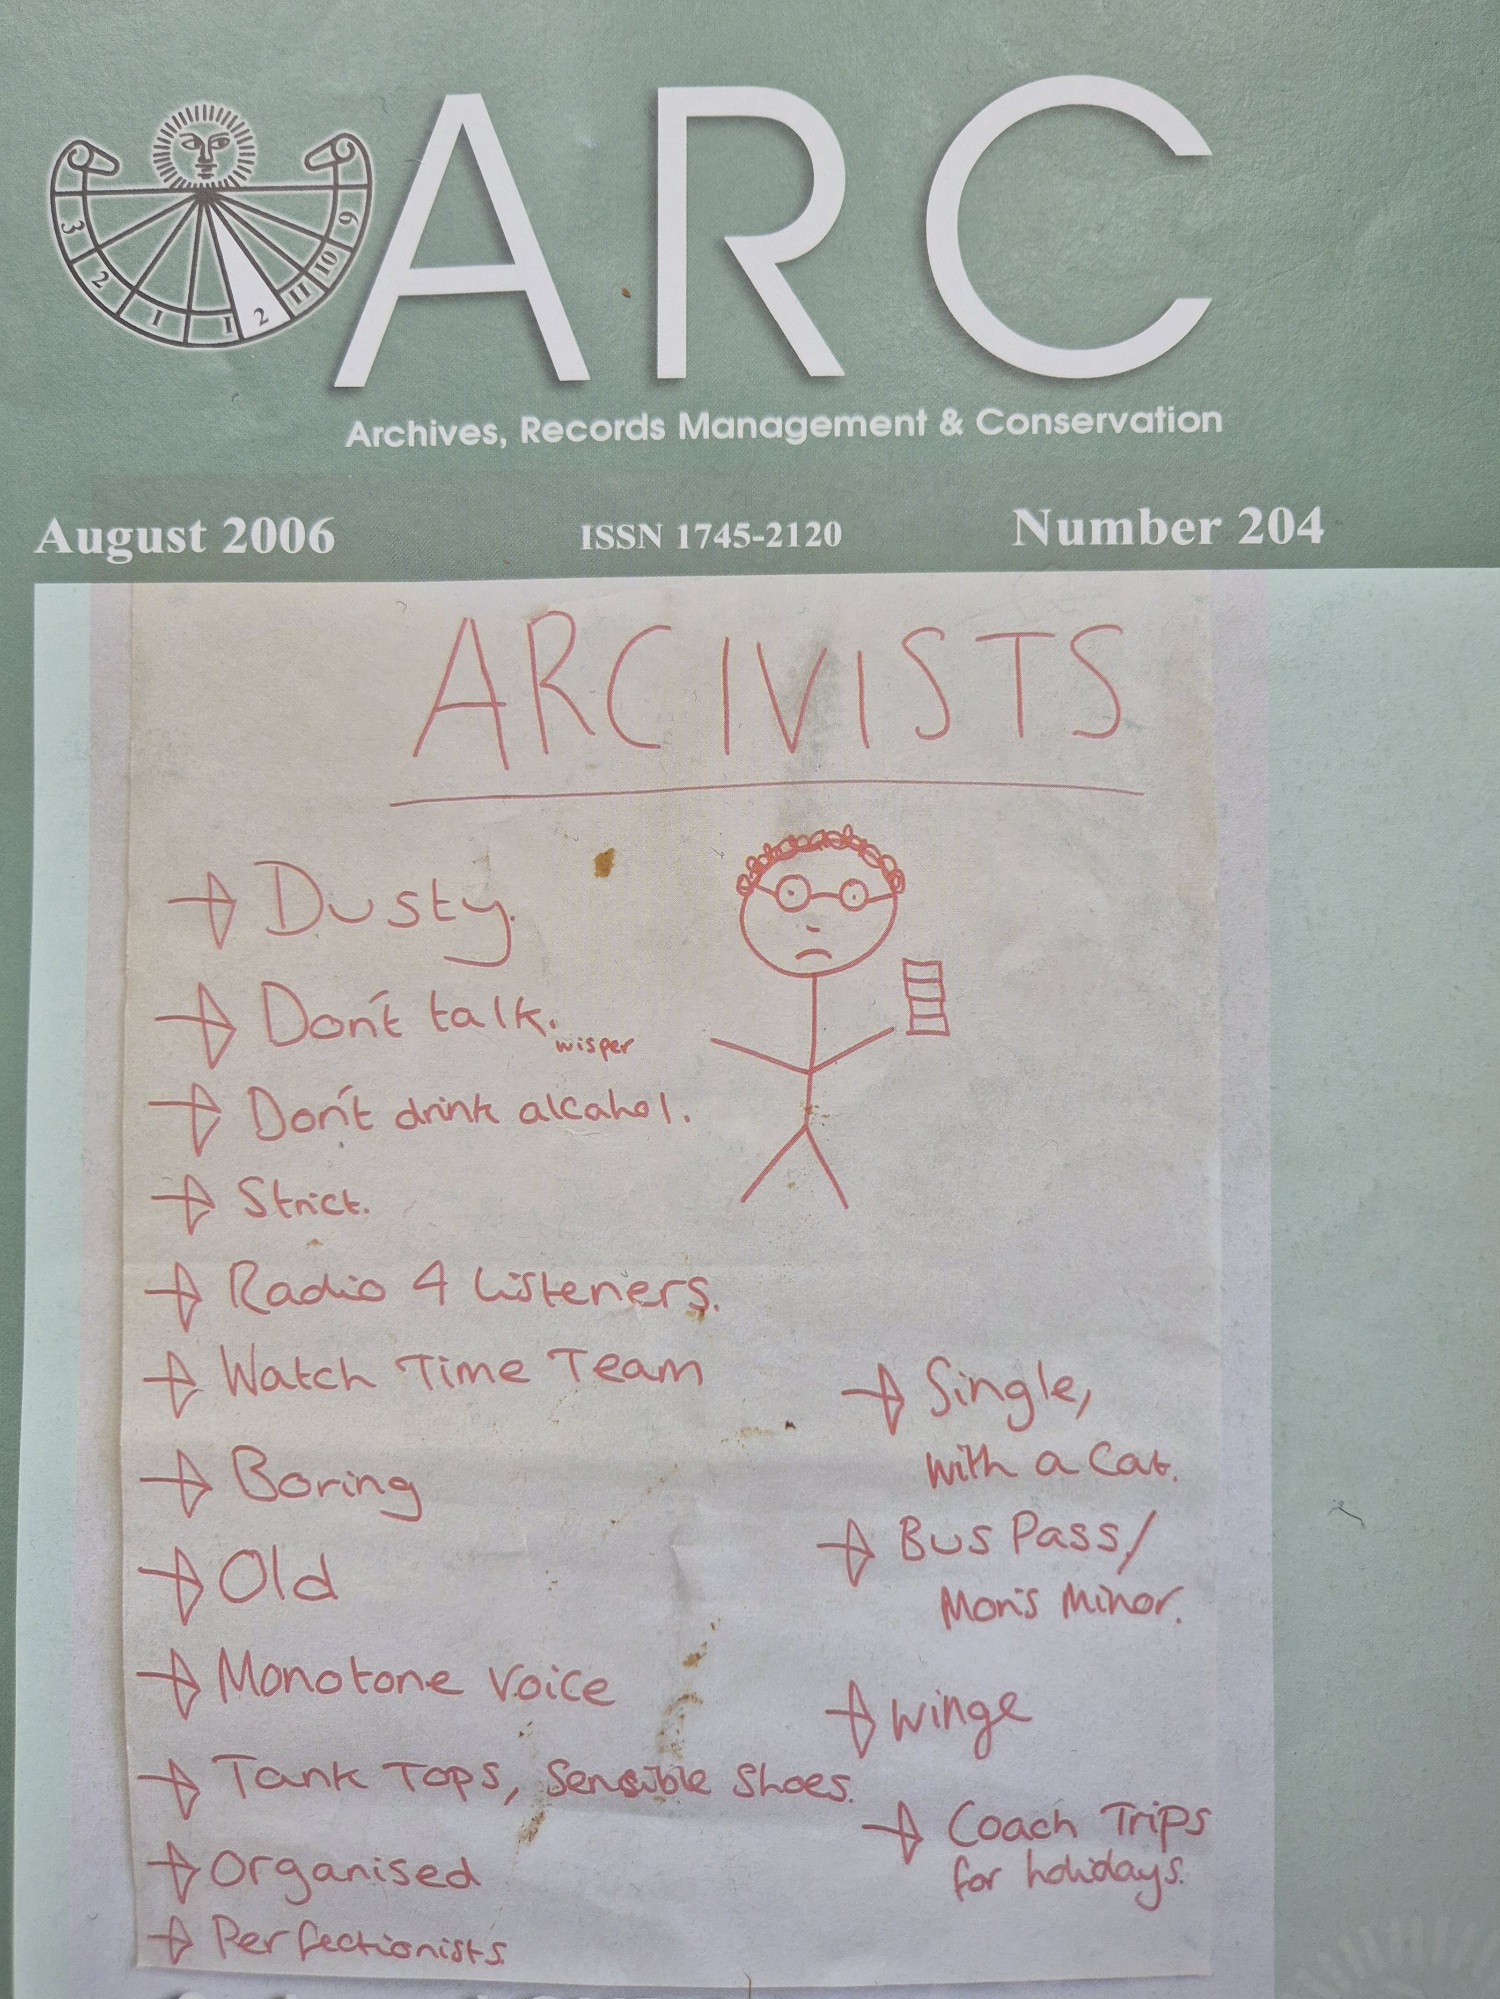 ARC
Archives, Records Management & Conservation
August 2006 ISSN 1745-2120 Number 204
3 2 1 12 11 10 9
ARCIVISTS
Dusty.
Don't talk.
wisper
Don't drink alcahol.
Strict.
Radio 4 listeners.
Watch Time Team
Boring
Old
Monotone voice
Tank Tops, Sensible Shoes.
Organised
Perfectionists.
Single,
with a Cat.
Bus Pass/
Morris Minor.
Winge
Coach Trips
for holidays.